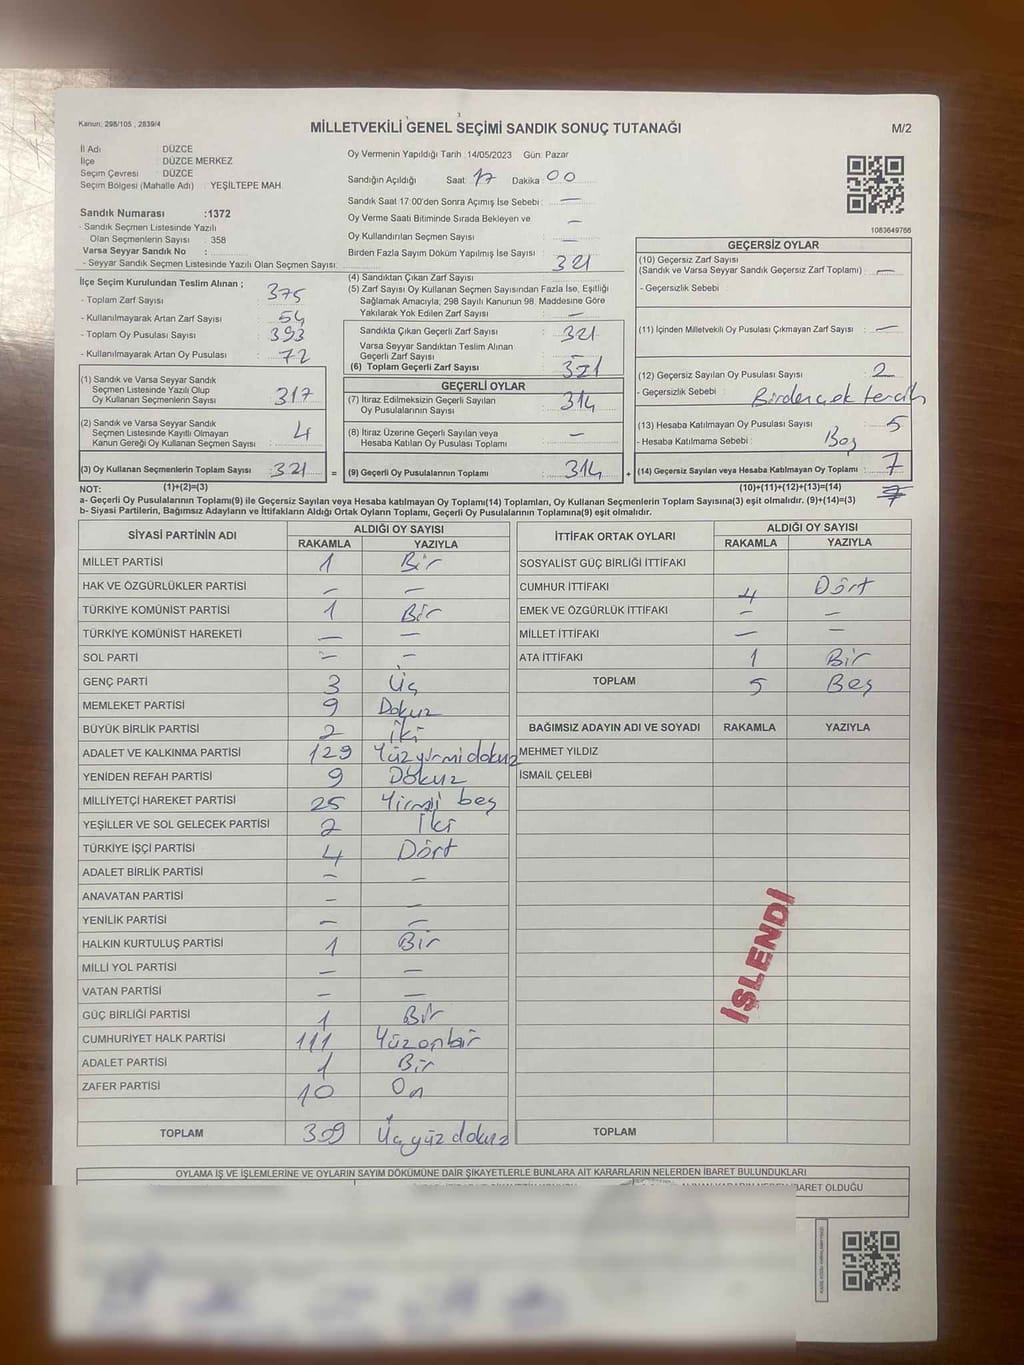 Kanun: 298/105 , 2839/4
MİLLETVEKİLİ GENEL SEÇİMİ SANDIK SONUÇ TUTANAĞI
M/2
İl Adı : DÜZCE
İlçe : DÜZCE MERKEZ
Seçim Çevresi : DÜZCE
Seçim Bölgesi (Mahalle Adı) : YEŞİLTEPE MAH.
Sandık Numarası :1372
- Sandık Seçmen Listesinde Yazılı
Olan Seçmenlerin Sayısı : 358
Varsa Seyyar Sandık No :
- Seyyar Sandık Seçmen Listesinde Yazılı Olan Seçmen Sayısı:
Oy Vermenin Yapıldığı Tarih :14/05/2023 Gün: Pazar
Sandığın Açıldığı Saat: 17 Dakika: 00
Sandık Saat 17:00'den Sonra Açımış İse Sebebi : —
Oy Verme Saati Bitiminde Sırada Bekleyen ve
Oy Kullandırılan Seçmen Sayısı : —
Birden Fazla Sayım Döküm Yapılmış İse Sayısı : —
1083649766
İlçe Seçim Kurulundan Teslim Alınan ;
- Toplam Zarf Sayısı : 375
- Kullanılmayarak Artan Zarf Sayısı : 54
- Toplam Oy Pusulası Sayısı : 393
- Kullanılmayarak Artan Oy Pusulası : 72
(1) Sandık ve Varsa Seyyar Sandık
Seçmen Listesinde Yazılı Olup
Oy Kullanan Seçmenlerin Sayısı : 317
(2) Sandık ve Varsa Seyyar Sandık
Seçmen Listesinde Kayıtlı Olmayan
Kanun Gereği Oy Kullanan Seçmen Sayısı : 4
(3) Oy Kullanan Seçmenlerin Toplam Sayısı : 321
(1)+(2)=(3)
(4) Sandıktan Çıkan Zarf Sayısı : 321
(5) Zarf Sayısı Oy Kullanan Seçmen Sayısından Fazla İse, Eşitliği
Sağlamak Amacıyla, 298 Sayılı Kanunun 98. Maddesine Göre
Yakılarak Yok Edilen Zarf Sayısı : —
Sandıkla Çıkan Geçerli Zarf Sayısı : 321
Varsa Seyyar Sandıktan Teslim Alınan
Geçerli Zarf Sayısı : —
(6) Toplam Geçerli Zarf Sayısı : 321
GEÇERLİ OYLAR
(7) İtiraz Edilmeksizin Geçerli Sayılan
Oy Pusulalarının Sayısı : 314
(8) İtiraz Üzerine Geçerli Sayılan veya
Hesaba Katılan Oy Pusulası Toplamı : —
= (9) Geçerli Oy Pusulalarının Toplamı : 314 +
GEÇERSİZ OYLAR
(10) Geçersiz Zarf Sayısı
(Sandık ve Varsa Seyyar Sandık Geçersiz Zarf Toplamı) : —
- Geçersizlik Sebebi :
(11) İçinden Milletvekili Oy Pusulası Çıkmayan Zarf Sayısı : —
(12) Geçersiz Sayılan Oy Pusulası Sayısı : 2
- Geçersizlik Sebebi : Birden çok tercih
(13) Hesaba Katılmayan Oy Pusulası Sayısı : 5
- Hesaba Katılmama Sebebi : Boş
(14) Geçersiz Sayılan veya Hesaba Katılmayan Oy Toplamı : 7
(10)+(11)+(12)+(13)=(14) 7
NOT:
a- Geçerli Oy Pusulalarının Toplamı(9) ile Geçersiz Sayılan veya Hesaba katılmayan Oy Toplamı(14) Toplamları, Oy Kullanan Seçmenlerin Toplam Sayısına(3) eşit olmalıdır. (9)+(14)=(3)
b- Siyasi Partilerin, Bağımsız Adayların ve İttifakların Aldığı Ortak Oyların Toplamı, Geçerli Oy Pusulalarının Toplamına(9) eşit olmalıdır.
SİYASİ PARTİNİN ADI ALDIĞI OY SAYISI
RAKAMLA YAZIYLA
MİLLET PARTİSİ 1 Bir
HAK VE ÖZGÜRLÜKLER PARTİSİ — —
TÜRKİYE KOMÜNİST PARTİSİ 1 Bir
TÜRKİYE KOMÜNİST HAREKETİ — —
SOL PARTİ — —
GENÇ PARTİ 3 Üç
MEMLEKET PARTİSİ 9 Dokuz
BÜYÜK BİRLİK PARTİSİ 2 İki
ADALET VE KALKINMA PARTİSİ 129 Yüzyirmidokuz
YENİDEN REFAH PARTİSİ 9 Dokuz
MİLLİYETÇİ HAREKET PARTİSİ 25 Yirmi beş
YEŞİLLER VE SOL GELECEK PARTİSİ 2 İki
TÜRKİYE İŞÇİ PARTİSİ 4 Dört
ADALET BİRLİK PARTİSİ — —
ANAVATAN PARTİSİ — —
YENİLİK PARTİSİ — —
HALKIN KURTULUŞ PARTİSİ 1 Bir
MİLLİ YOL PARTİSİ — —
VATAN PARTİSİ — —
GÜÇ BİRLİĞİ PARTİSİ 1 Bir
CUMHURİYET HALK PARTİSİ 111 Yüzonbir
ADALET PARTİSİ 1 Bir
ZAFER PARTİSİ 10 On
TOPLAM 309 Üçyüz dokuz
İTTİFAK ORTAK OYLARI ALDIĞI OY SAYISI
RAKAMLA YAZIYLA
SOSYALİST GÜÇ BİRLİĞİ İTTİFAKI
CUMHUR İTTİFAKI 4 Dört
EMEK VE ÖZGÜRLÜK İTTİFAKI — —
MİLLET İTTİFAKI — —
ATA İTTİFAKI 1 Bir
TOPLAM 5 Beş
BAĞIMSIZ ADAYIN ADI VE SOYADI RAKAMLA YAZIYLA
MEHMET YILDIZ
İSMAİL ÇELEBİ
İŞLENDİ
TOPLAM
OYLAMA İŞ VE İŞLEMLERİNE VE OYLARIN SAYIM DÖKÜMÜNE DAİR ŞİKAYETLERLE BUNLARA AİT KARARLARIN NELERDEN İBARET BULUNDUKLARI
İBARET OLDUĞU